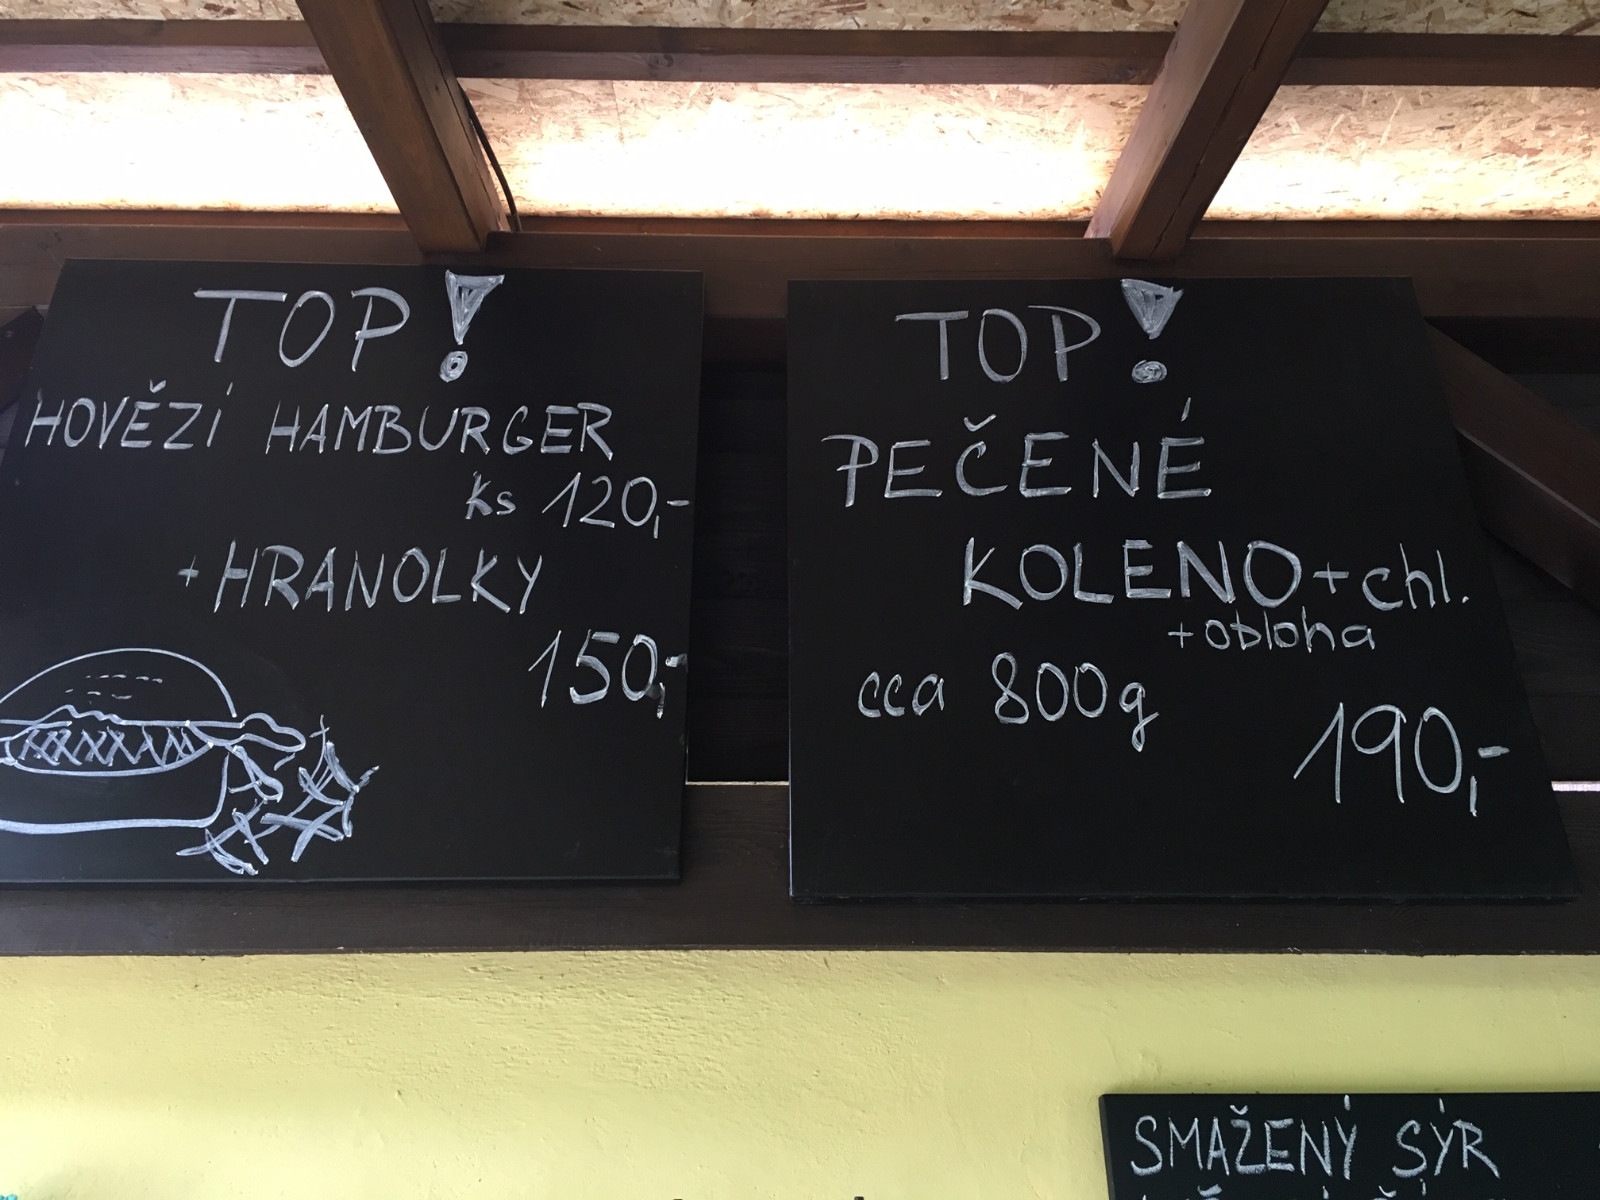 TOP!
HOVĚZÍ HAMBURGER
ks 120,-
+HRANOLKY
150,-
TOP!
PEČENÉ
KOLENO+chl.
+obloha
cca 800g
190,-
SMAŽENÝ SÝR